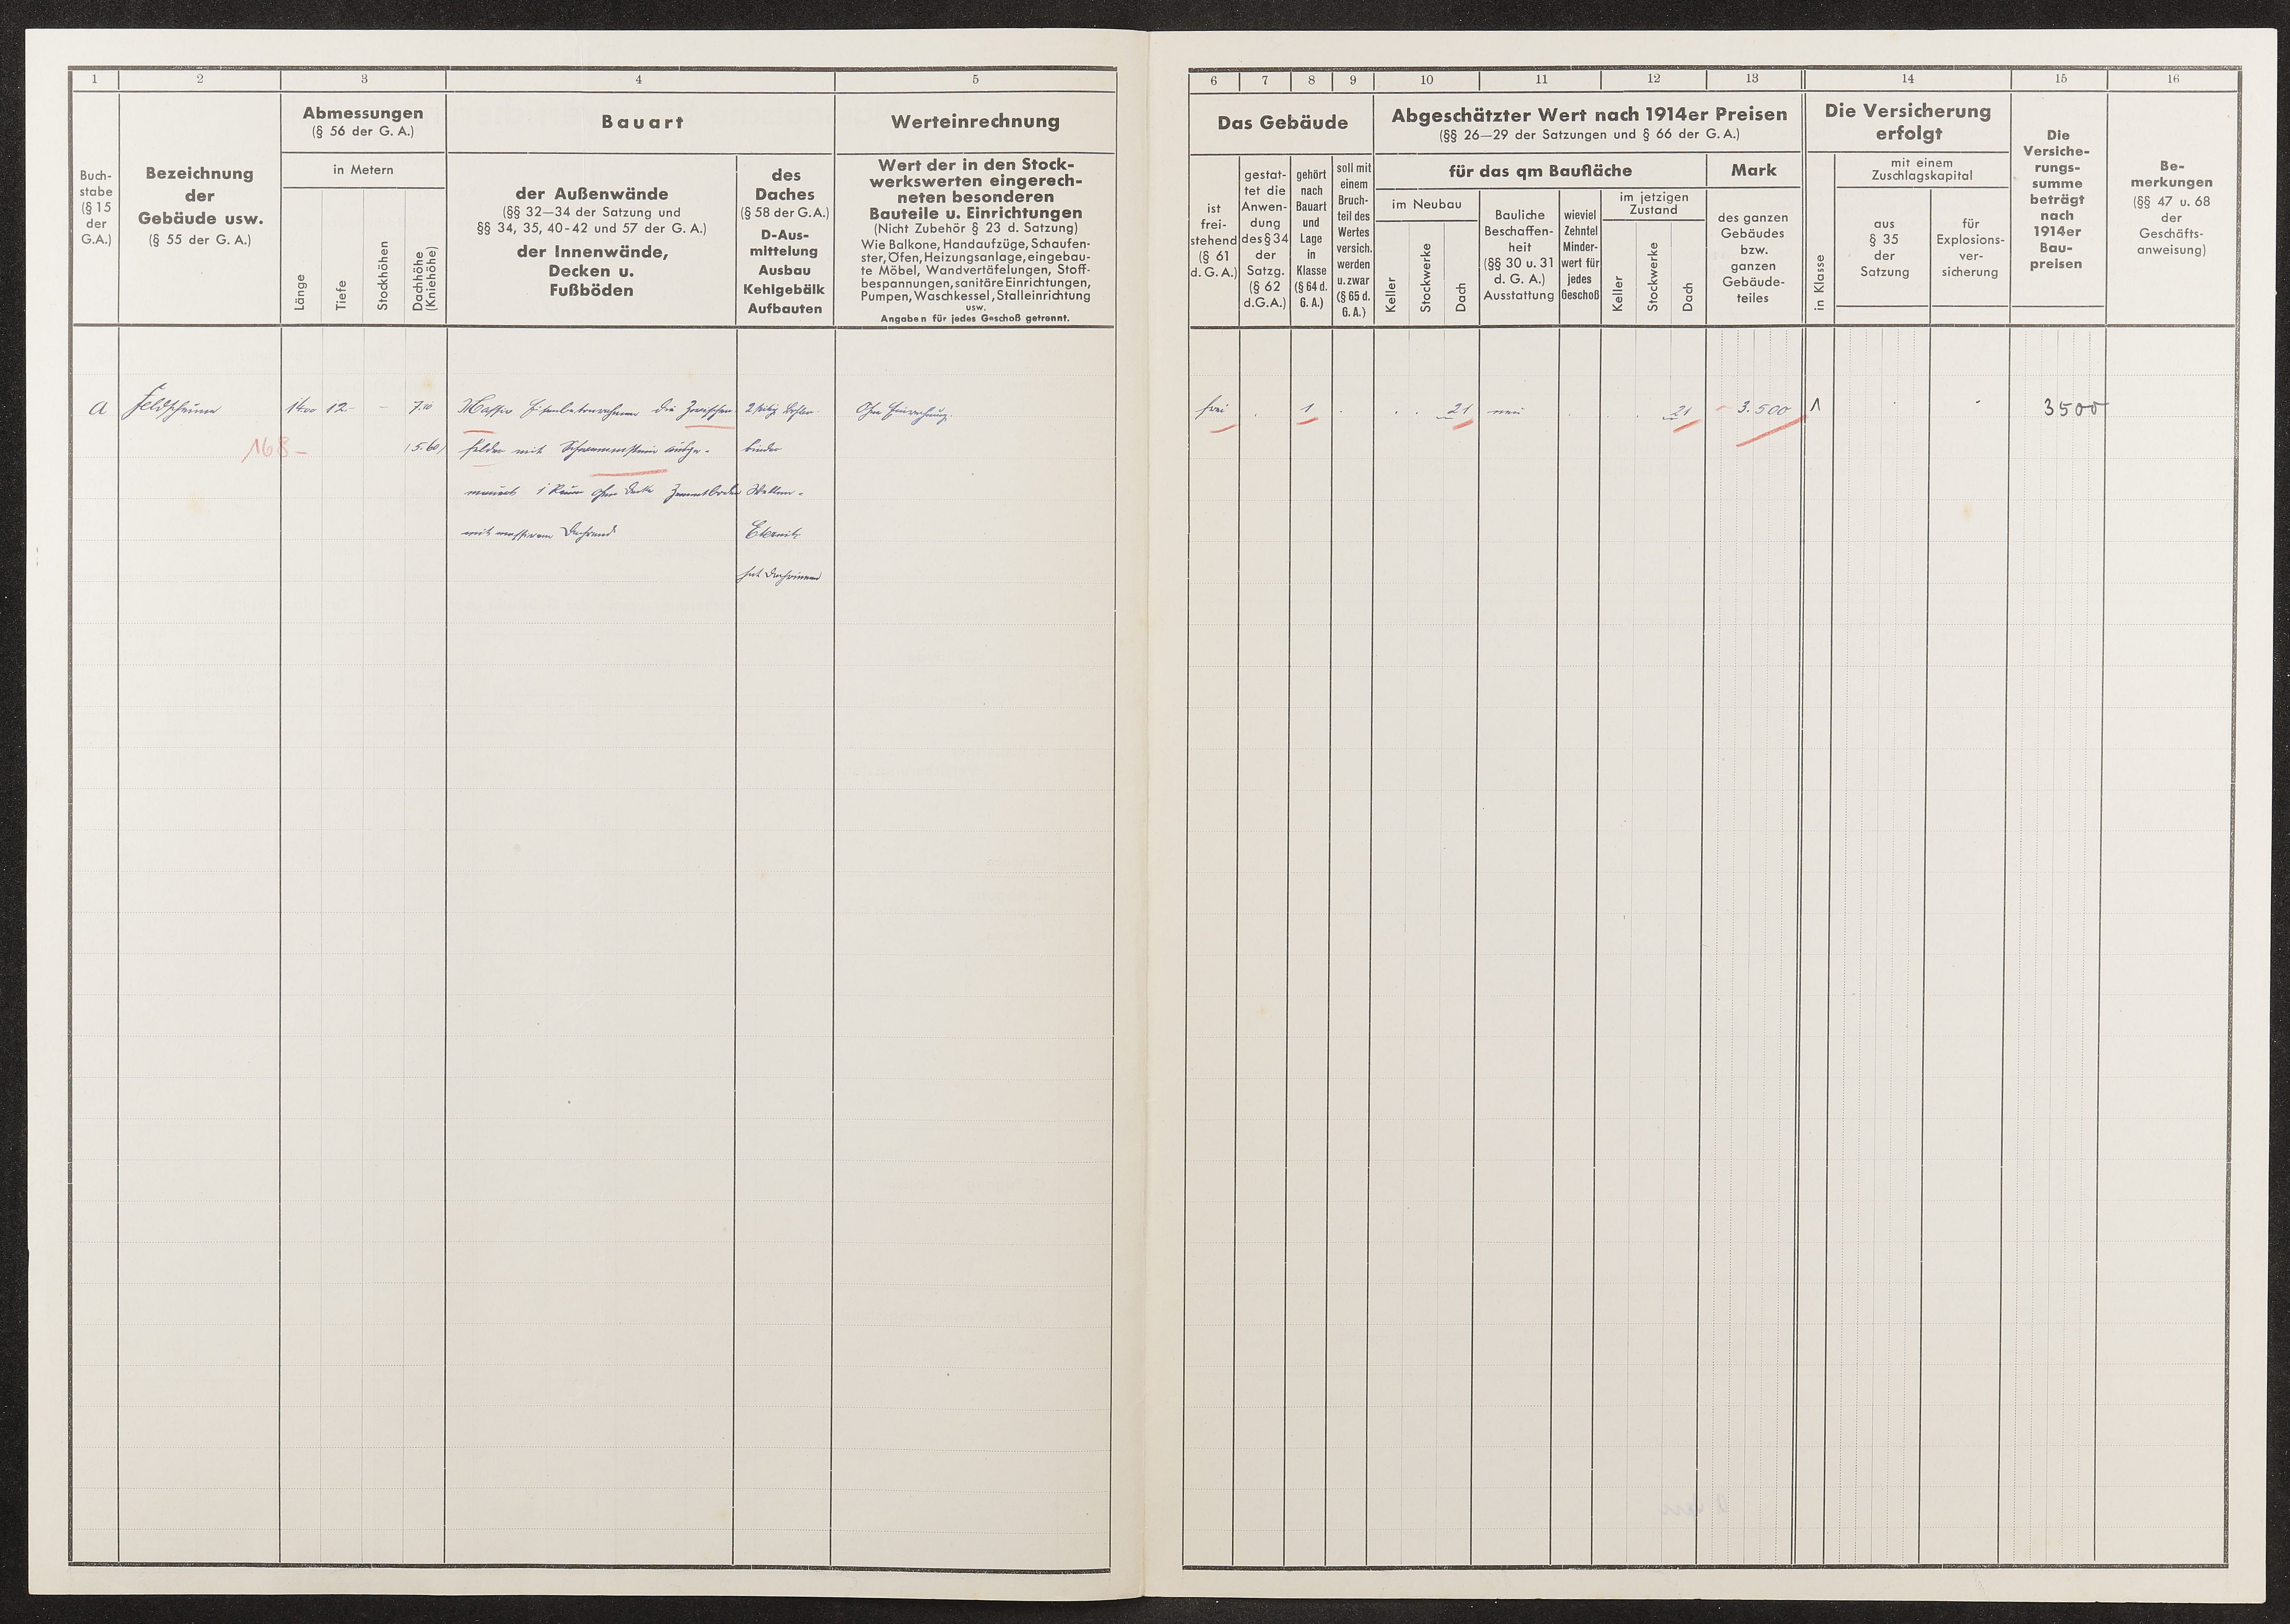 1 2 3 4 5
Buch-
stabe
(§ 15
der
G.A.)
Bezeichnung
der
Gebäude usw.
(§ 55 der G. A.)
Abmessungen
(§ 56 der G. A.)
in Metern
Länge
Tiefe
Stockhöhen
Dachhöhe
(Kniehöhe)
Bauart
der Außenwände
(§§ 32—34 der Satzung und
§§ 34, 35, 40-42 und 57 der G. A.)
der Innenwände,
Decken u.
Fußböden
des
Daches
(§ 58 der G.A.)
D-Aus-
mittelung
Ausbau
Kehlgebälk
Aufbauten
Werteinrechnung
Wert der in den Stock-
werkswerten eingerech-
neten besonderen
Bauteile u. Einrichtungen
(Nicht Zubehör § 23 d. Satzung)
Wie Balkone, Handaufzüge, Schaufen-
ster, Öfen, Heizungsanlage, eingebau-
te Möbel, Wandvertäfelungen, Stoff-
bespannungen, sanitäre Einrichtungen,
Pumpen, Waschkessel, Stalleinrichtung
usw.
Angaben für jedes Geschoß getrennt.
a Feldscheune 14.00 12.- - 7.10 Massiv Eisenbetonrahmen die Zwischen- 2 stielig Bohlen- Ohne Einrechnung.
168- (5.60) felder mit Schwemmstein ausge- binder
mauert 1 Raum ohne Decke Zementboden Wellen-
mit massivem Eternit
hat Dachrinnen
6 7 8 9 10 11 12 13 14 15 16
Das Gebäude
ist
frei-
stehend
(§ 61
d. G. A.)
gestat-
tet die
Anwen-
dung
des § 34
der
Satzg.
(§ 62
d.G.A.)
gehört
nach
Bauart
und
Lage
in
Klasse
(§ 64 d.
G. A.)
soll mit
einem
Bruch-
teil des
Wertes
versich.
werden
u. zwar
(§ 65 d.
G. A.)
Abgeschätzter Wert nach 1914er Preisen
(§§ 26—29 der Satzungen und § 66 der G. A.)
für das qm Baufläche
im Neubau
Keller
Stockwerke
Dach
Bauliche
Beschaffen-
heit
(§§ 30 u. 31
d. G. A.)
Ausstattung
wieviel
Zehntel
Minder-
wert für
jedes
Geschoß
im jetzigen
Zustand
Keller
Stockwerke
Dach
Mark
des ganzen
Gebäudes
bzw.
ganzen
Gebäude-
teiles
Die Versicherung
erfolgt
in Klasse
mit einem
Zuschlagskapital
aus
§ 35
der
Satzung
für
Explosions-
ver-
sicherung
Die
Versiche-
rungs-
summe
beträgt
nach
1914er
Bau-
preisen
Be-
merkungen
(§§ 47 u. 68
der
Geschäfts-
anweisung)
frei . 1 . . . 21 neu . . 21 3.500 1 . . 3500